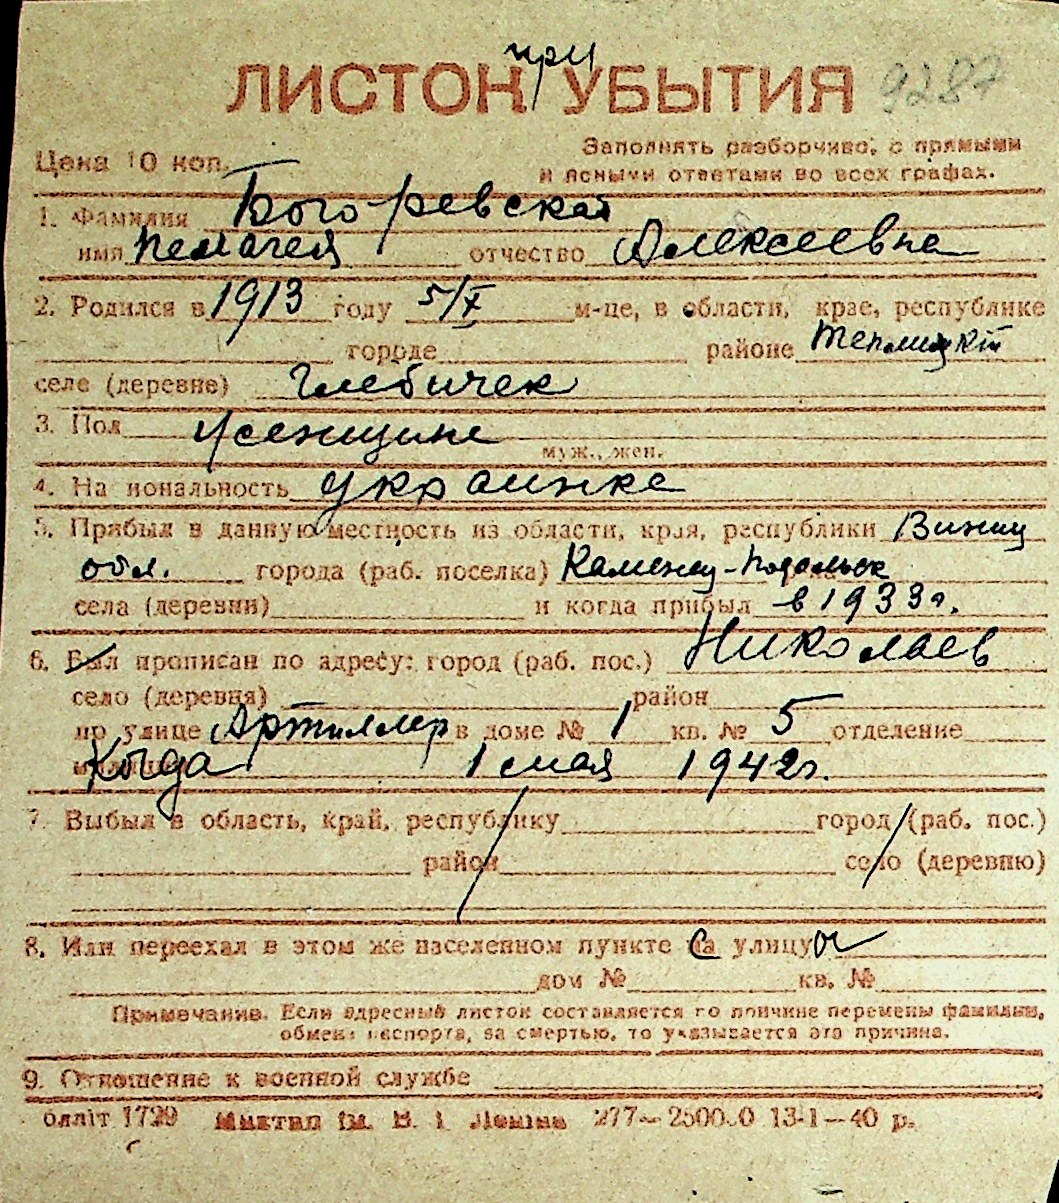 при
ЛИСТОК УБЫТИЯ 9287
Цена 10 коп.
Заполнять разборчиво, с прямыми
и ясными ответами во всех графах.
1. Фамилия Богоревская
имя Пелагея отчество Алексеевна
2. Родился в 1913 году 5/X м-це, в области, крае, республике
городе районе Теплицкий
селе (деревне) Глебичек
3. Пол женщина
муж., жен.
4. Национальность украинка
5. Прибыл в данную местность из области, края, республики Винниц
обл. города (раб. поселка) Каменец-Подольск
села (деревни) и когда прибыл в 1933 г.
6. Был прописан по адресу: город (раб. пос.) Николаев
село (деревня) район
по улице Артиллер в доме № 1 кв. № 5 отделение
Когда 1 мая 1942 г.
7. Выбыл в область, край, республику город (раб. пос.)
район село (деревню)
8. Или переехал в этом же населенном пункте на улицу
дом № кв. №
Примечание. Если адресный листок составляется по причине перемены фамилии,
обмена паспорта, за смертью, то указывается эта причина.
9. Отношение к военной службе
блліт 1729 Миктип ім. В. І. Леніна 277—2500.0 13-1—40 р.